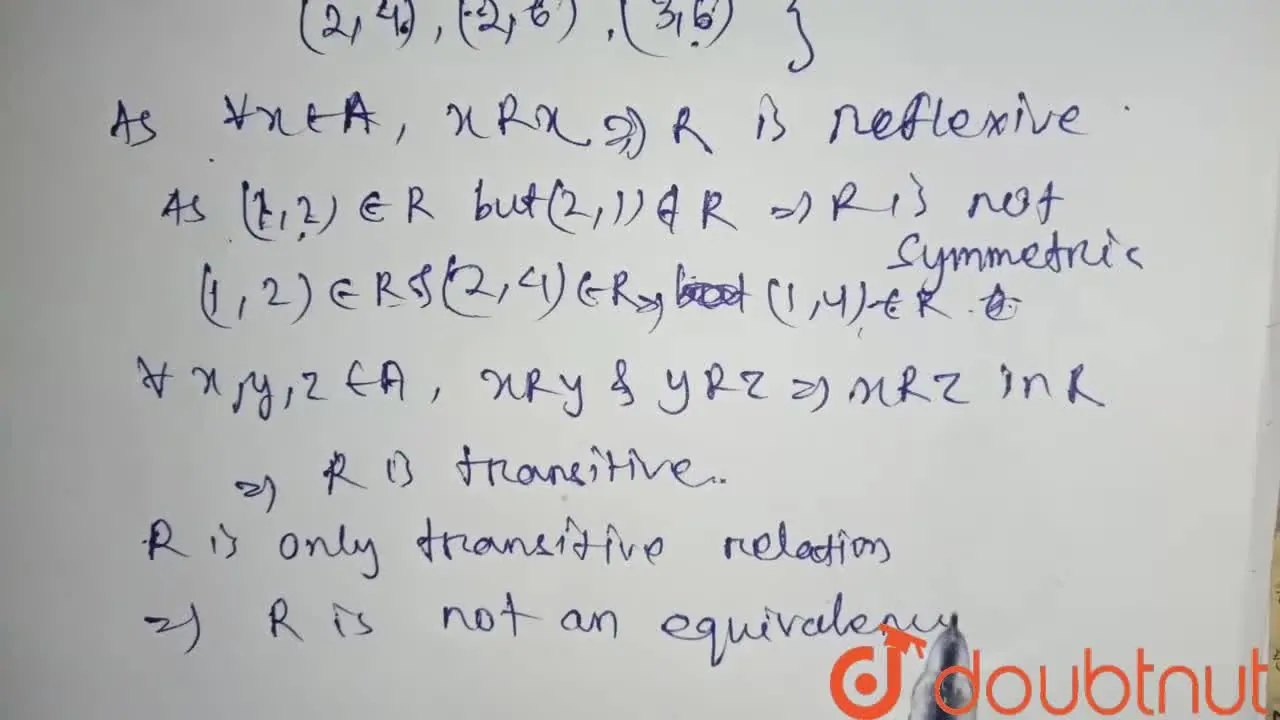 (2,4), (2,6), (3,6) }
As ∀x∈A, xRx ⇒ R is reflexive
As (1,2) ∈ R but (2,1) ∉ R ⇒ R is not
symmetric
(1,2) ∈ R & (2,4) ∈ R ⇒ (1,4) ∈ R
∀ x,y,z ∈ A, xRy & yRz ⇒ xRz in R
⇒ R is transitive.
R is only transitive relation
⇒ R is not an equivalency
doubtnut